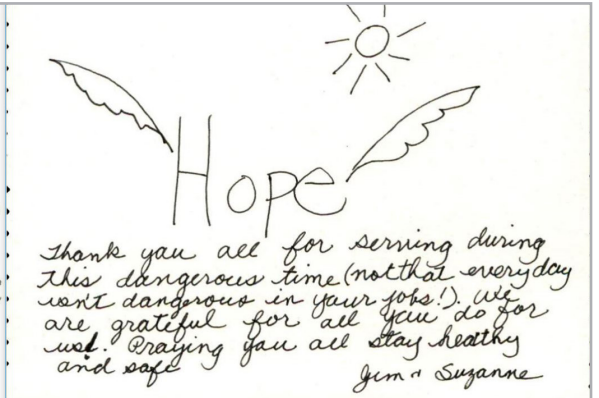 Hope
Thank you all for serving during
this dangerous time (not that everyday
isn't dangerous in your jobs!). We
are grateful for all you do for
us. Praying you all stay healthy
and safe
Jim & Suzanne